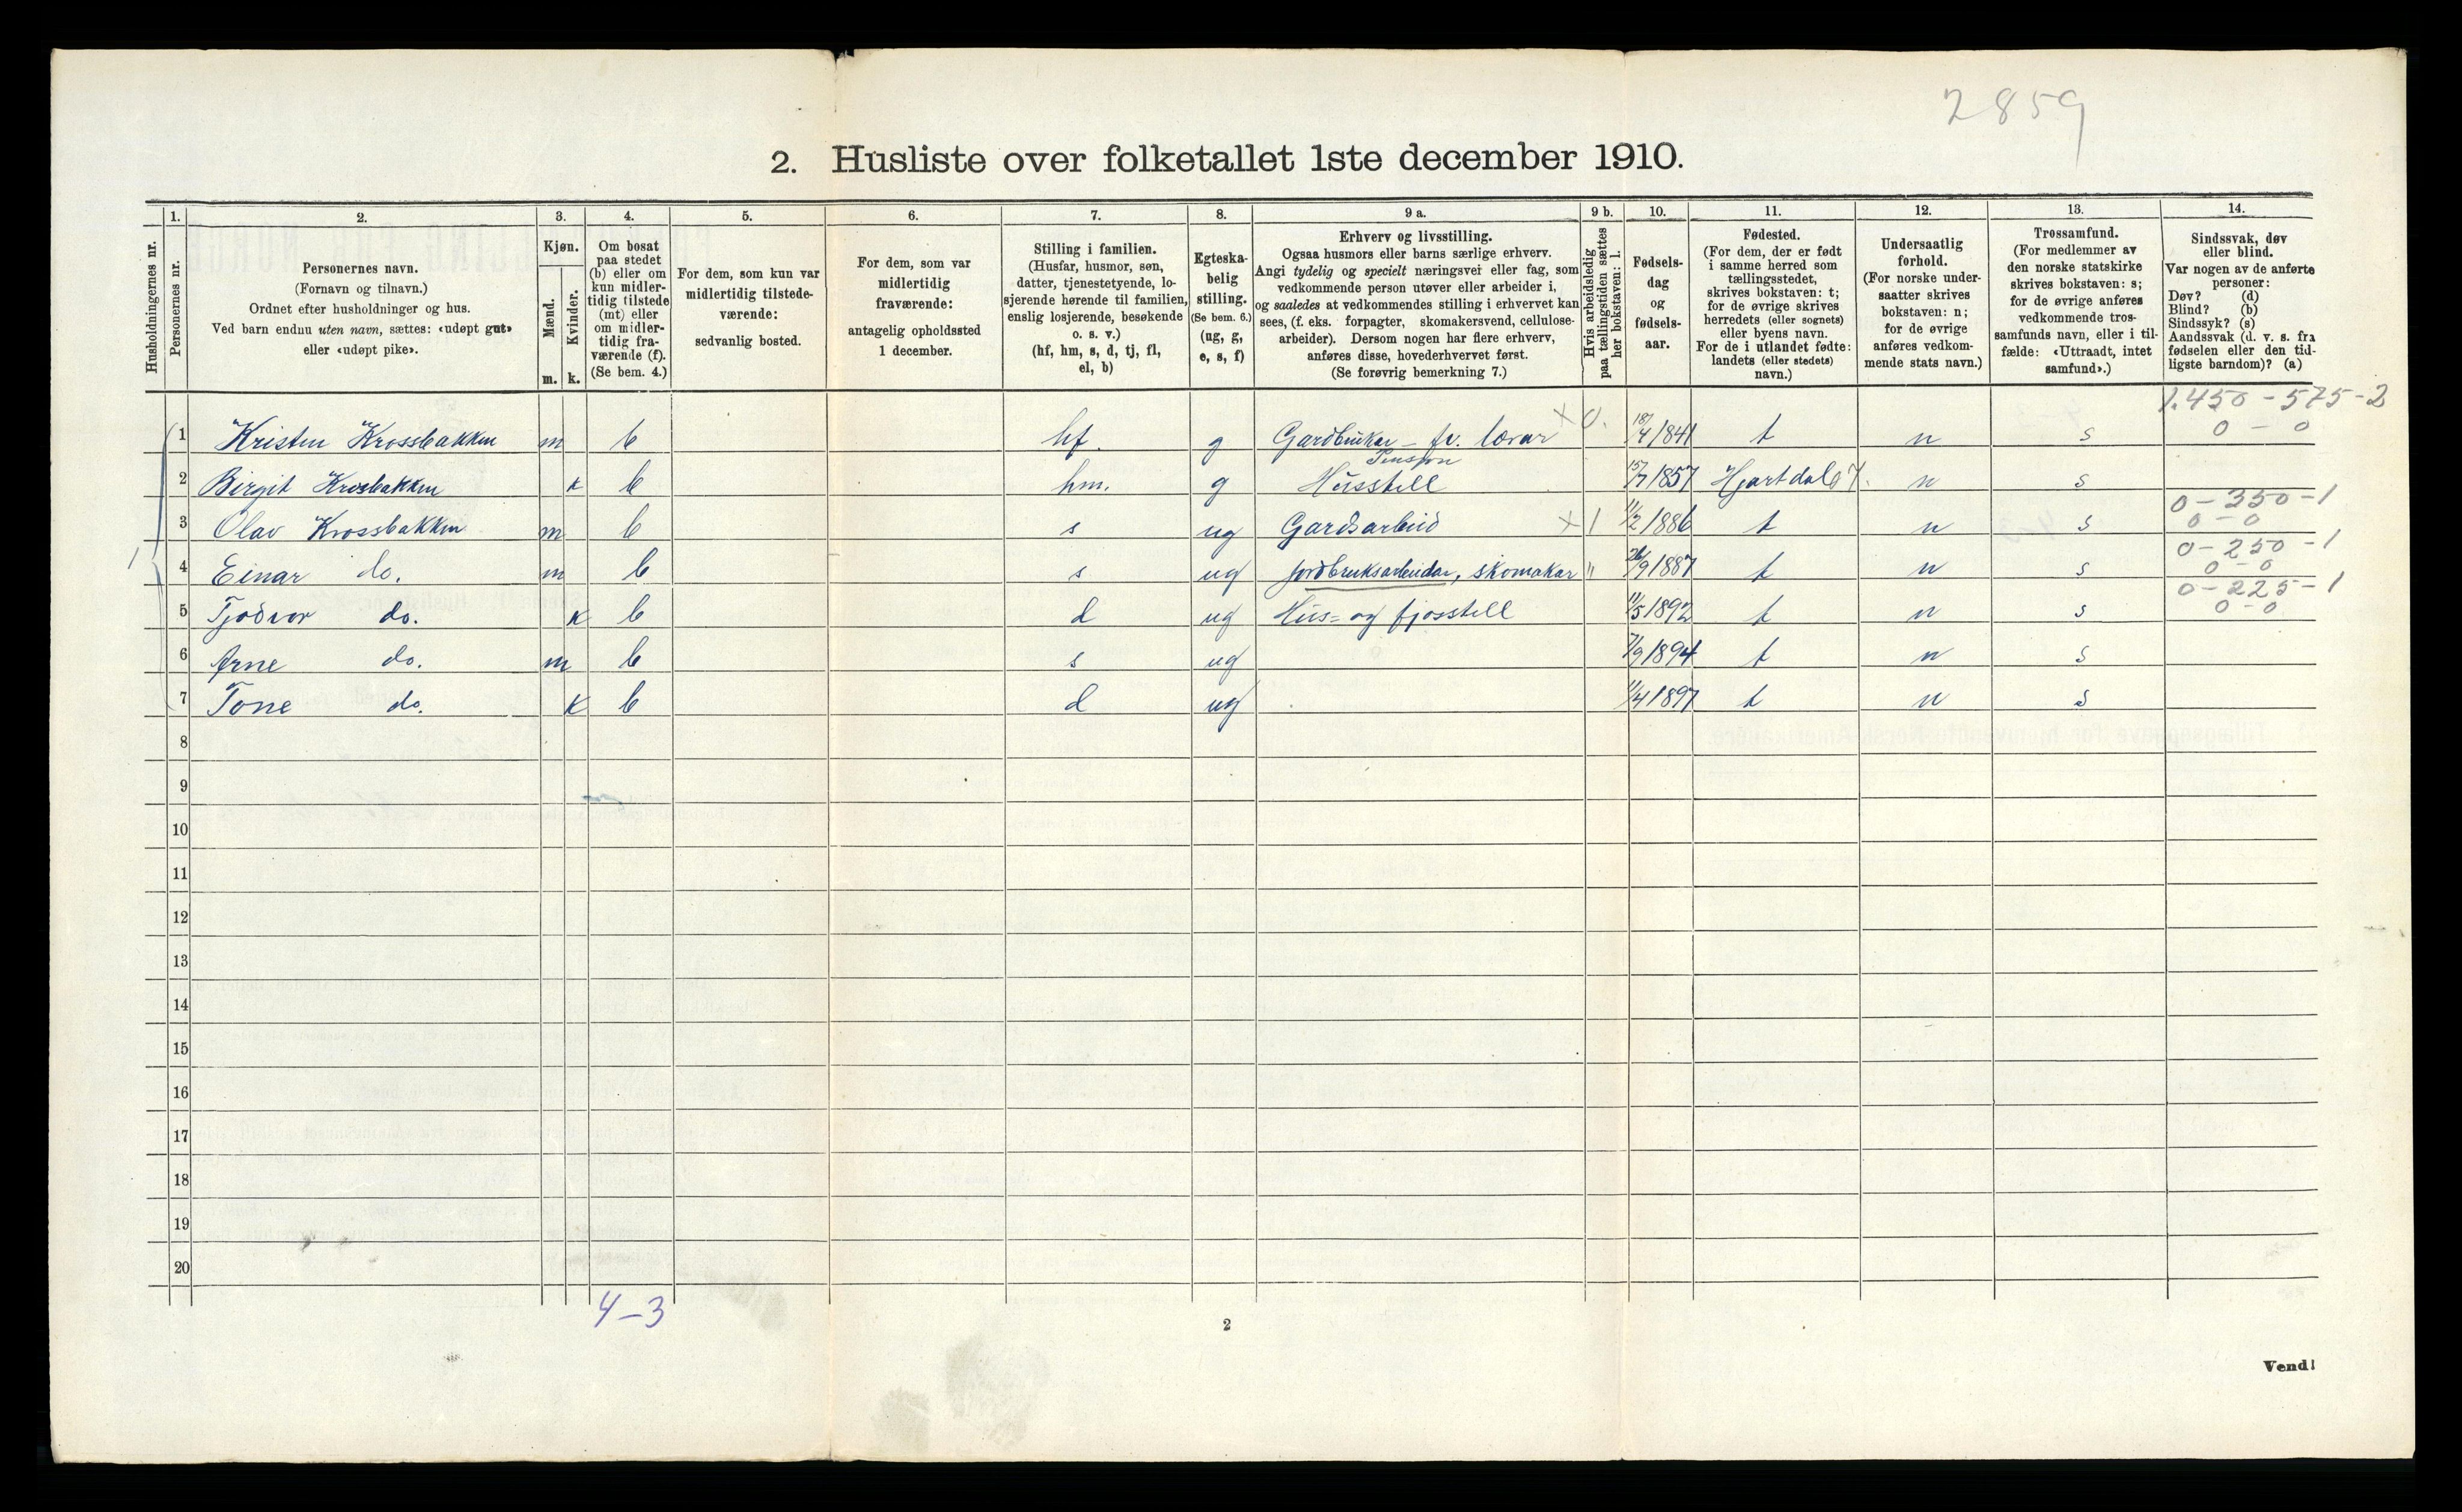 2859
2. Husliste over folketallet 1ste december 1910.
Husholdningernes nr.
1. Personernes nr.
2. Personernes navn.
(Fornavn og tilnavn.)
Ordnet efter husholdninger og hus.
Ved barn endnu uten navn, sættes: «udøpt gut»
eller «udøpt pike».
3. Kjøn.
Mænd. m.
Kvinder. k.
4. Om bosat
paa stedet
(b) eller om
kun midler-
tidig tilstede
(mt) eller
om midler-
tidig fra-
værende (f).
(Se bem. 4.)
5. For dem, som kun var
midlertidig tilstede-
værende:
sedvanlig bosted.
6. For dem, som var
midlertidig
fraværende:
antagelig opholdssted
1 december.
7. Stilling i familien.
(Husfar, husmor, søn,
datter, tjenestetyende, lo-
sjerende hørende til familien,
enslig losjerende, besøkende
o. s. v.)
(hf, hm, s, d, tj, fl,
el, b)
8. Egteska-
belig
stilling.
(Se bem. 6.)
(ug, g,
e, s, f)
9 a. Erhverv og livsstilling.
Ogsaa husmors eller barns særlige erhverv.
Angi tydelig og specielt næringsvei eller fag, som
vedkommende person utøver eller arbeider i,
og saaledes at vedkommendes stilling i erhvervet kan
sees, (f. eks. forpagter, skomakersvend, cellulose-
arbeider). Dersom nogen har flere erhverv,
anføres disse, hovederhvervet først.
(Se forøvrig bemerkning 7.)
9 b. Hvis arbeidsledig
paa tællingstiden sættes
her bokstaven: l.
10. Fødsels-
dag
og
fødsels-
aar.
11. Fødested.
(For dem, der er født
i samme herred som
tællingsstedet,
skrives bokstaven: t;
for de øvrige skrives
herredets (eller sognets)
eller byens navn.
For de i utlandet fødte:
landets (eller stedets)
navn.)
12. Undersaatlig
forhold.
(For norske under-
saatter skrives
bokstaven: n;
for de øvrige
anføres vedkom-
mende stats navn.)
13. Trossamfund.
(For medlemmer av
den norske statskirke
skrives bokstaven: s;
for de øvrige anføres
vedkommende tros-
samfunds navn, eller i til-
fælde: «Uttraadt, intet
samfund».)
14. Sindssvak, døv
eller blind.
Var nogen av de anførte
personer:
Døv? (d)
Blind? (b)
Sindssyk? (s)
Aandssvak (d. v. s. fra
fødselen eller den tid-
ligste barndom)? (a)
1.450 - 575 - 2
1 Kristen Krossbakken m b hf. g Gardbrukar - fv. lærar x 0. 18/4 1841 t n s 0 - 0
Pensjon
2 Birgit Krosbakken k b hm. g Husstell 15/7 1857 Hjartdal 07. n s
0 - 350 - 1
3 Olav Krossbakken m b s ug Gardsarbeid x 1 11/2 1886 t n s 0 - 0
0 - 250 - 1
1 4 Einar do. m b s ug Jordbruksarbeidar, skomakar " 26/9 1887 t n s 0 - 0
0 - 225 - 1
5 Tjodvor do. k b d ug Hus- og fjosstell 11/5 1892 t n s 0 - 0
6 Arne do. m b s ug 7/9 1894 t n s
7 Tone do. k b d ug 11/4 1897 t n s
8
9
10
11
12
13
14
15
16
17
18
19
20
4 - 3
2
Vend!